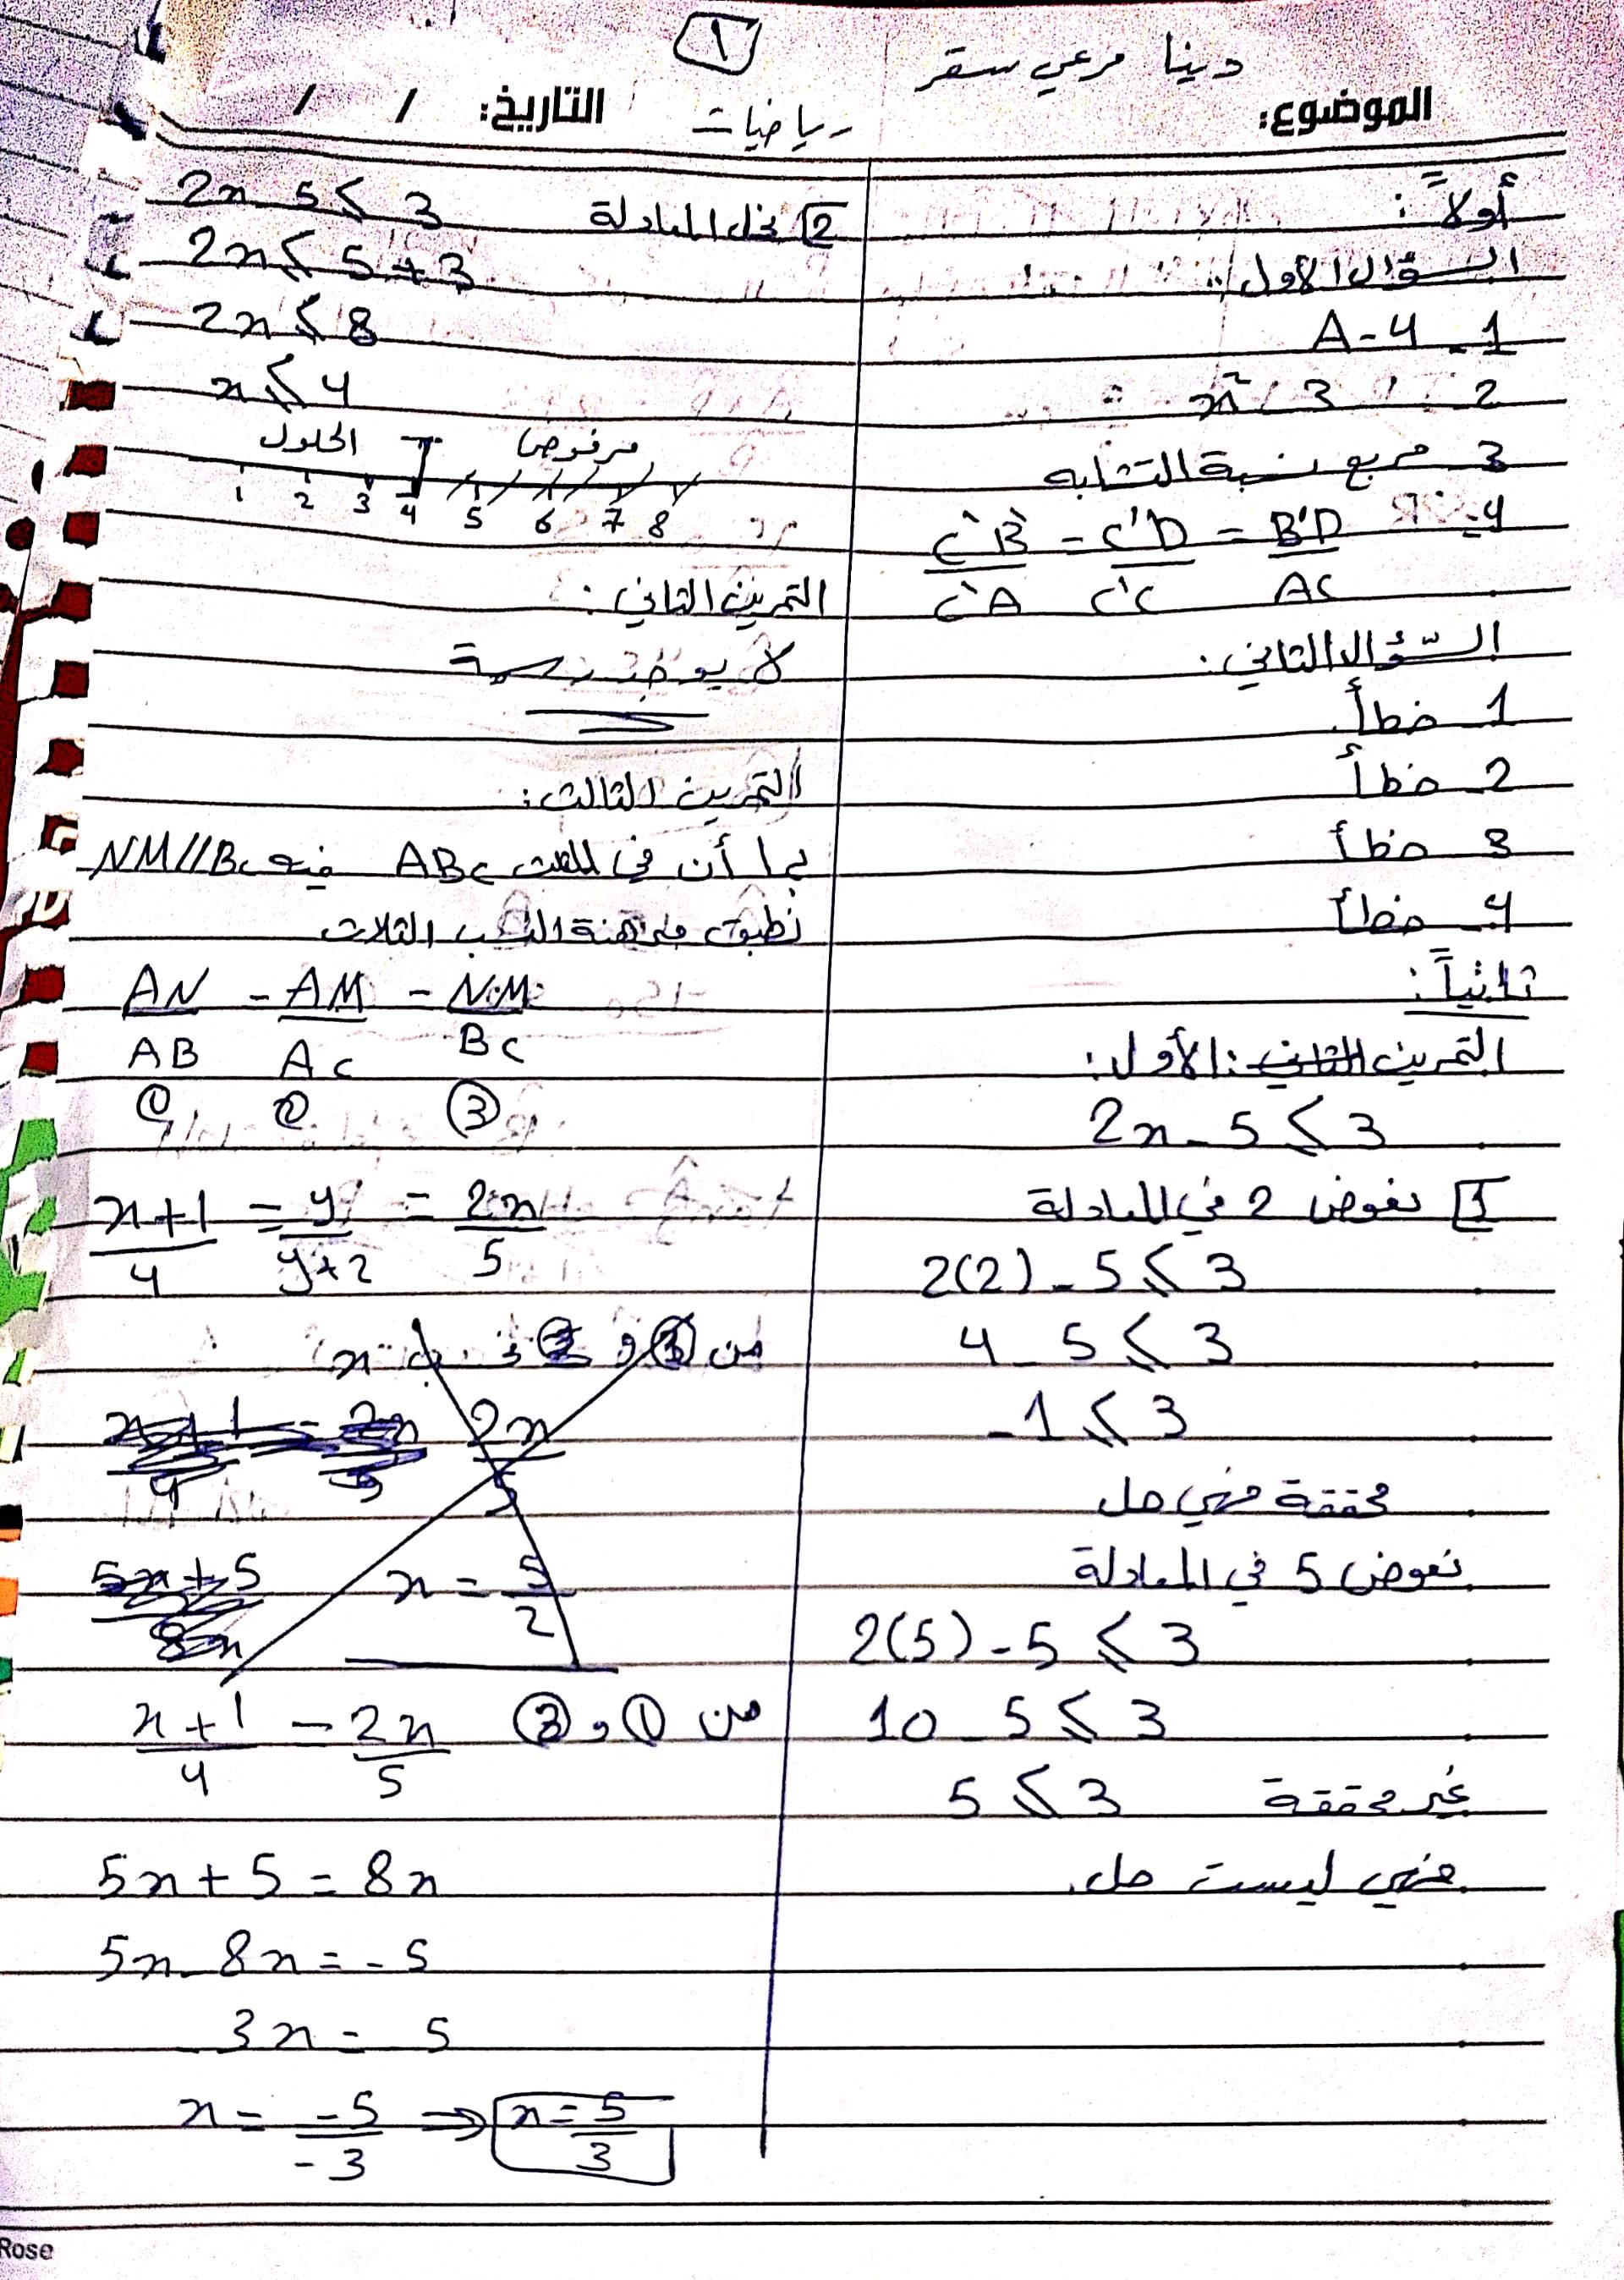 ١
دينا مرعي سقر
الموضوع:
رياضيات
التاريخ: / /
أولاً:
السؤال الأول:
1- A-4
2- 3 x²
3- مربع نسبة التشابه
4- C'B'/C'A = C'D/C'C = B'D/AC
السّؤال الثاني:
1- خطأ
2- خطأ
3- خطأ
4- خطأ
ثانياً:
التمرين الأول:
2x - 5 ⩽ 3
1 نعوض 2 في المعادلة
2(2) - 5 ⩽ 3
4 - 5 ⩽ 3
-1 ⩽ 3
محققة فهي حل
نعوض 5 في المعادلة
2(5) - 5 ⩽ 3
10 - 5 ⩽ 3
5 ⩽ 3 غير محققة
فهي ليست حل.
2 نحل المعادلة 2x - 5 ⩽ 3
2x ⩽ 5 + 3
2x ⩽ 8
x ⩽ 4
الحلول مرفوض
1 2 3 4 5 6 7 8
التمرين الثاني:
لا يوجد رسمة
التمرين الثالث:
بما أن في المثلث ABC فيه NM//BC
نطبق مبرهنة النسب الثلاث
AN/AB = AM/AC = NM/BC
① ② ③
x+1/4 = y/y+2 = 2x/5
2x/5
x = 5/2
من ① و ③ x+1/4 = 2x/5
5x + 5 = 8x
5x - 8x = -5
-3x = -5
x = -5/-3 ⇒ x = 5/3
Rose